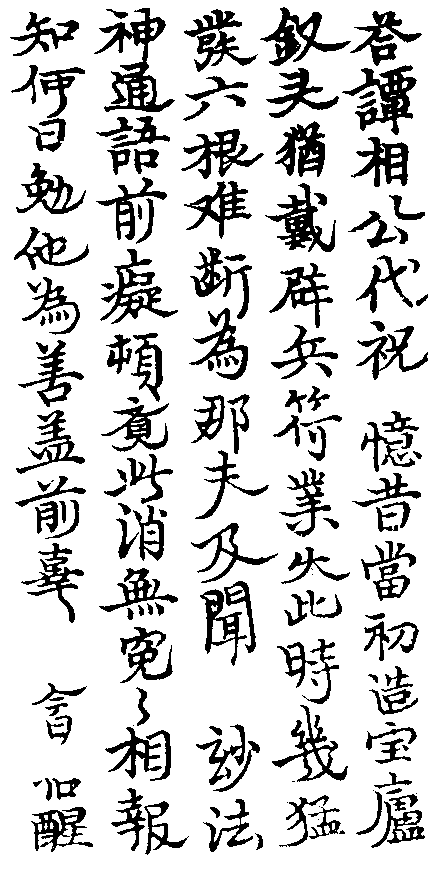 荅譚相公代祝 憶昔當初造宝廬
釵头猶戴辟兵符業火此時幾猛
發六根难断為那夫及聞 玅法
神通語前癡頓竟此消無寃〻相報
知何日勉他為善盖前辜 醒